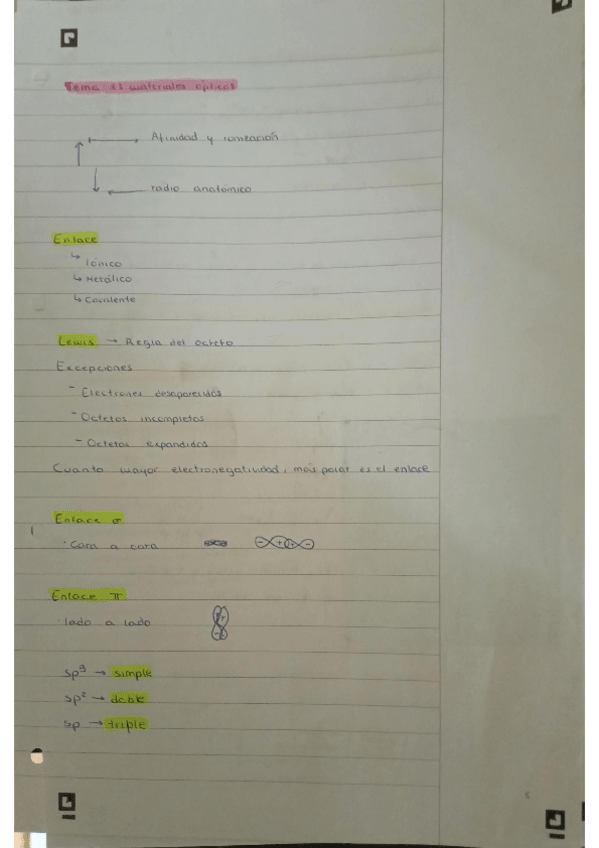 Tema 1: materiales ópticos
Afinidad y ionización
radio anatómico
Enlace
↳ Iónico
↳ Metálico
↳ Covalente
Lewis → Regla del octeto
Excepciones
- Electrones desaparecidos
- Octetos incompletos
- Octetos expandidos
Cuanto mayor electronegatividad, mas polar es el enlace
Enlace σ
· Cara a cara - + + -
Enlace π
· lado a lado
sp³ → simple
sp² → doble
sp → triple